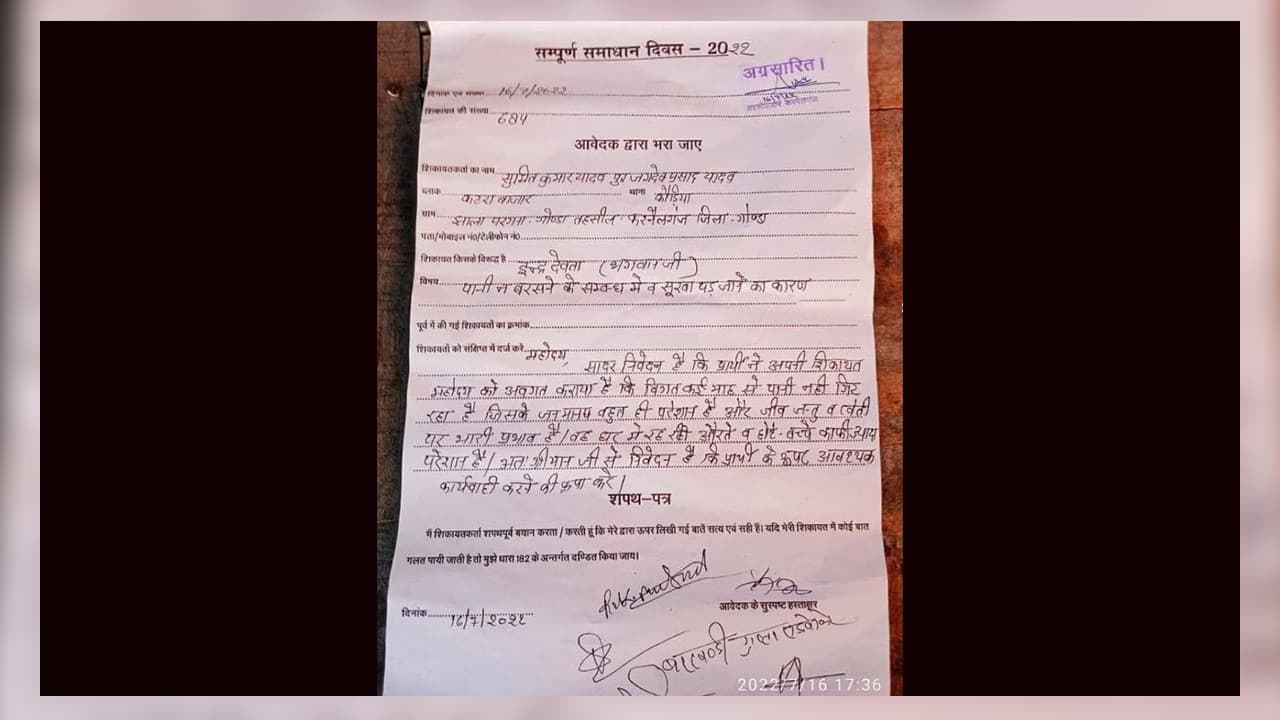 सम्पूर्ण समाधान दिवस – 20२२
अग्रसारित।
दिनांक एवं संख्या 16/7/2022
शिकायत की संख्या 684
आवेदक द्वारा भरा जाए
शिकायतकर्ता का नाम सुमित कुमार यादव पुत्र जगदेव प्रसाद यादव
ब्लाक कटरा बाजार थाना कौड़िया
ग्राम झाला परगना-गोण्डा तहसील-करनैलगंज जिला-गोण्डा
पता/मोबाइल नं0/टेलीफोन नं0
शिकायत किसके विरूद्ध है इन्द्र देवता (भगवान जी)
विषय पानी न बरसने के सम्बन्ध में व सूखा पड़ जाने का कारण
पूर्व में की गई शिकायतों का क्रमांक
शिकायतों को संक्षिप्त में दर्ज करें महोदय,
सादर निवेदन है कि प्रार्थी ने अपनी शिकायत
महोदय को अवगत कराया है कि विगत कई माह से पानी नही गिर
रहा है जिसके बहुत ही परेशान है और जीव जन्तु व खेती
पर भारी प्रभाव है। घर में रह रही औरते व छोटे-बच्चे काफी
परेशान है। अतः श्रीमान जी से निवेदन है कि प्रार्थी के आवश्यक
कार्यवाही करने की कृपा करे।
शपथ–पत्र
मैं शिकायतकर्ता शपथपूर्व बयान करता / करती हूं कि मेरे द्वारा ऊपर लिखी गई बातें सत्य एवं सही हैं। यदि मेरी शिकायत में कोई बात
गलत पायी जाती है तो मुझे धारा 182 के अन्तर्गत दण्डित किया जाय।
आवेदक के सुस्पष्ट हस्ताक्षर
दिनांक 16/7/२०२२
2022/7/16 17:36